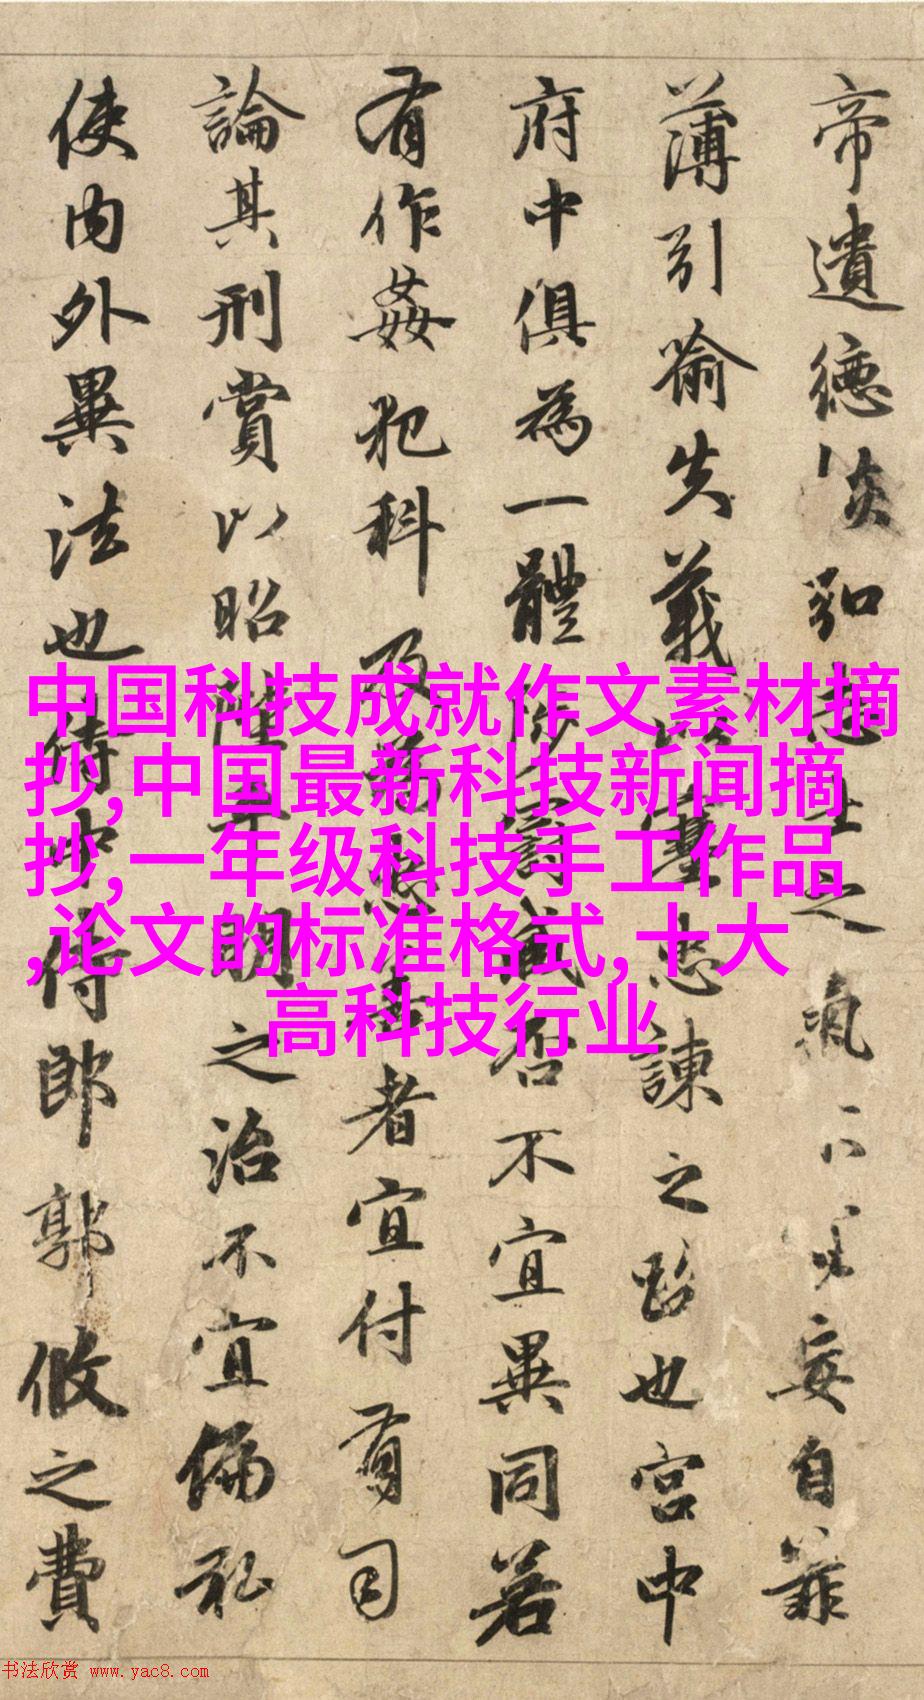 帝遺德恢弘志士之氣不宜妄自菲
薄引喻失義以塞忠諫之路也宮中
府中俱為一體陟罰臧否不宜異同若
有作姦犯科及為忠善者宜付有司
論其刑賞以昭陛下平明之治不宜偏私
使內外異法也侍中侍郎郭攸之費
中国科技成就作文素材摘
抄,中国最新科技新闻摘
抄,一年级科技手工作品
,论文的标准格式,十大
高科技行业
书法欣赏 www.yac8.com